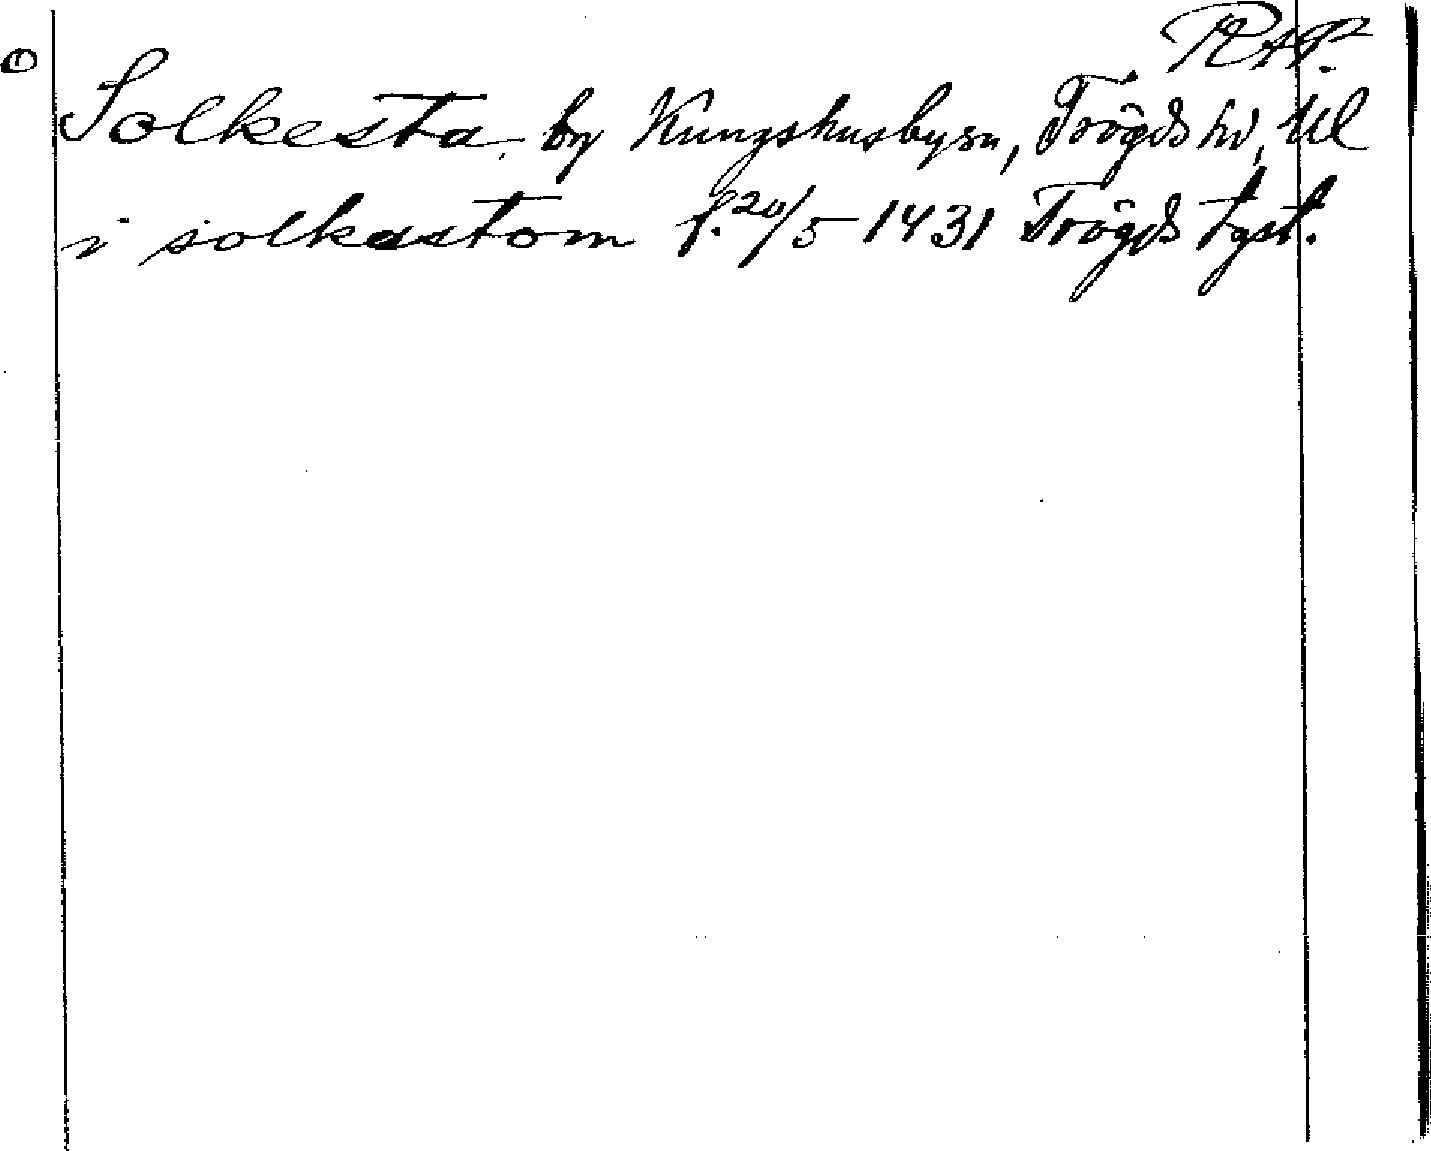 RAP.
Solkesta, by Kungshusbysn, Trögds hd, Ul
i solkastom f. 20/5 1431 Trögds tgst.